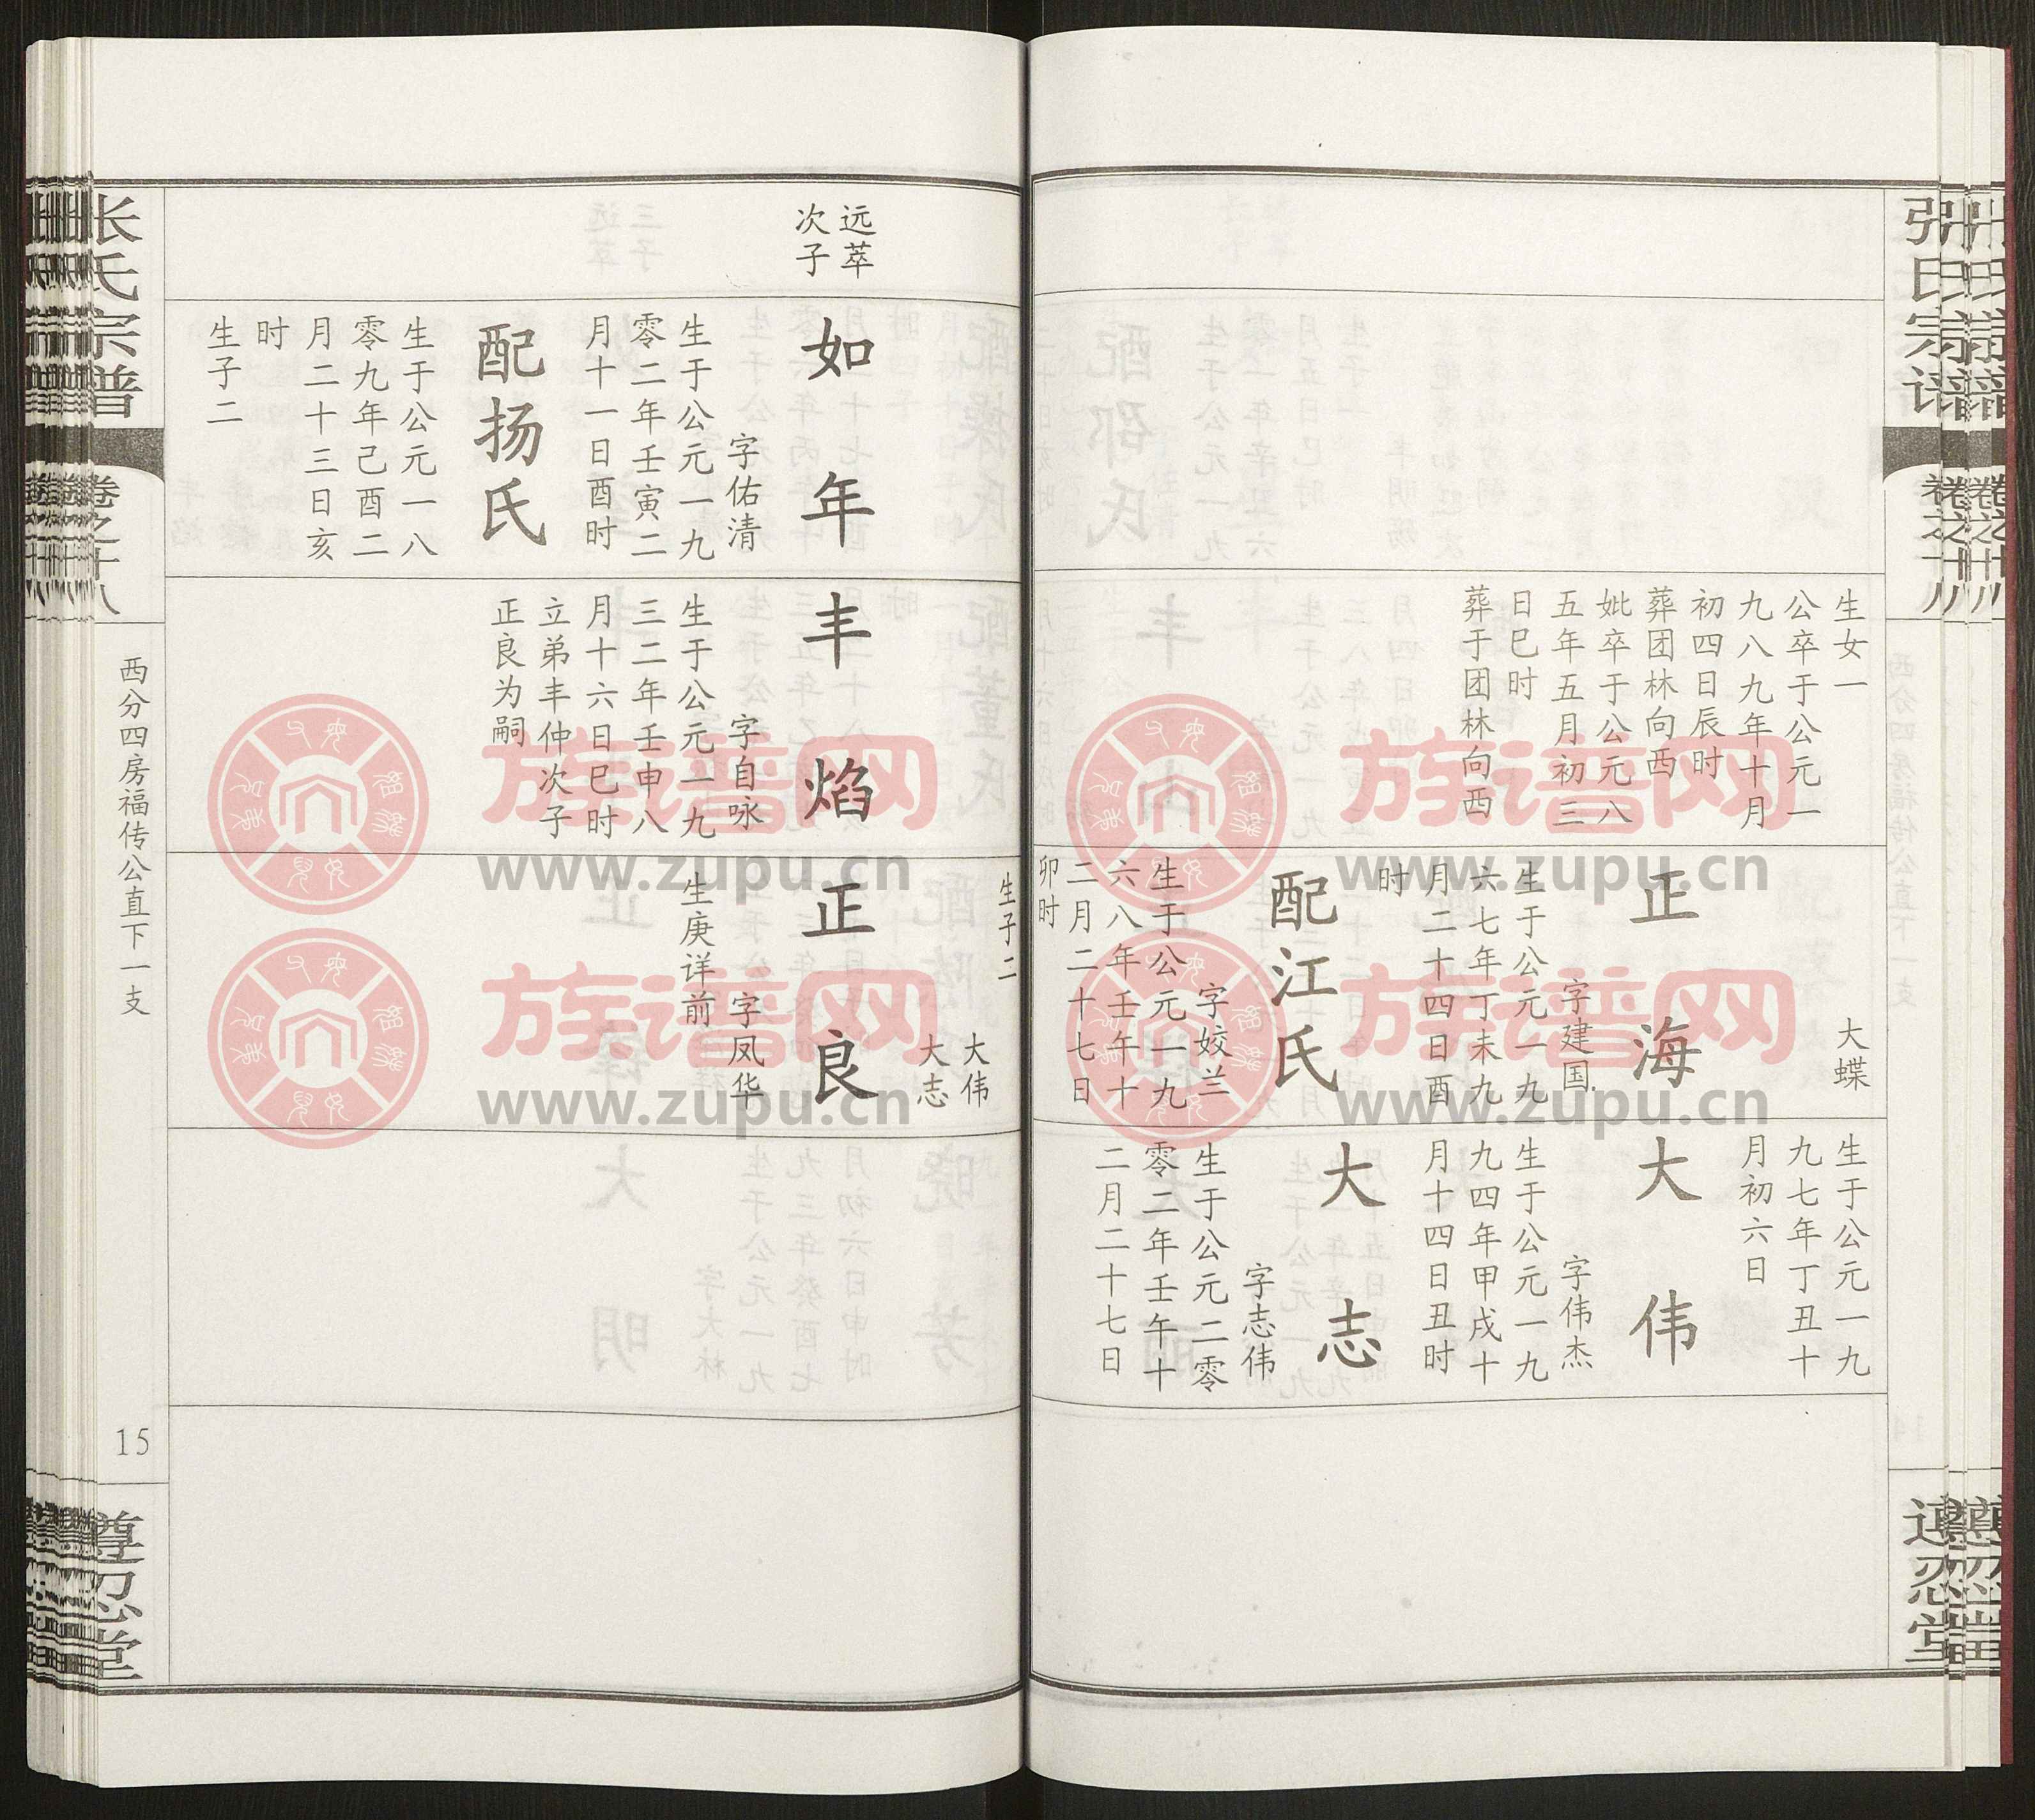 张氏宗谱
卷之十八
遵忍堂
生女一
公卒于公元一
九八九年十月
初四日辰时
葬团林向西
妣卒于公元八
五年五月初三
日巳时
葬于团林向西
大蝶
正海
字建国
生于公元一九
六七年丁未九
月二十四日酉
时
配江氏
字姣兰
生于公元一九
六八年壬年十
二月二十七日
卯时
生于公元一九
九七年丁丑十
月初六日
大伟
字伟杰
生于公元一九
九四年甲戌十
月十四日丑时
大志
字志伟
生于公元二零
零二年壬午十
二月二十七日
远萃
次子
如年
字佑清
生于公元一九
零二年壬寅二
月十一日酉时
配扬氏
生于公元一八
零九年己酉二
月二十三日亥
时
生子二
丰焰
字自咏
生于公元一九
三二年壬申八
月十六日巳时
立弟丰仲次子
正良为嗣
生子二
大伟
大志
正良
字凤华
生庚详前
张氏宗谱
卷之十八
西分四房福传公直下一支
15
尊忍堂
族谱网
www.zupu.cn
族谱网
www.zupu.cn
族谱网
www.zupu.cn
族谱网
www.zupu.cn